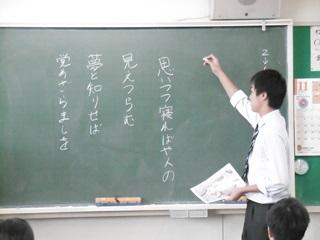 思いつつ寝ればや人の
見えつらむ
夢と知りせば
覚めざらましを
11